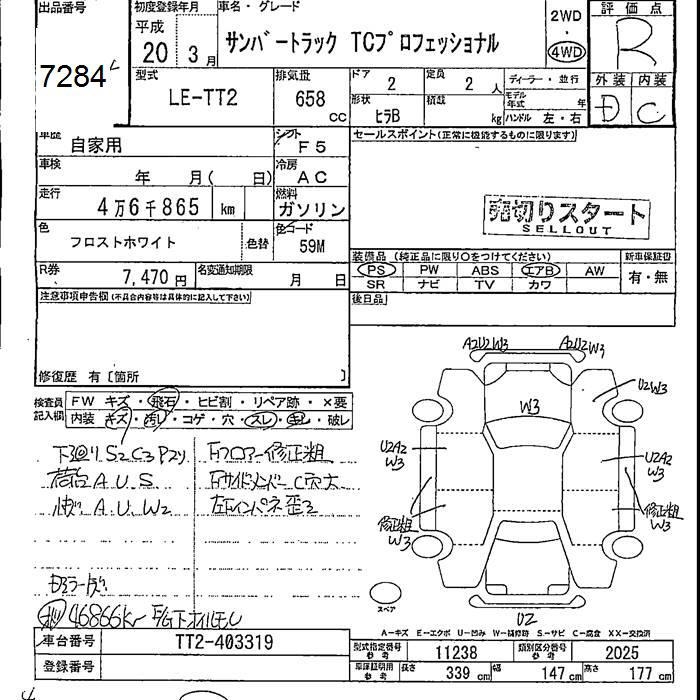 出品番号 初度登録年月 車名・グレード 2WD・4WD 評価点
7284
平成 20 3月
サンバートラック TCプロフェッショナル
R
型式 LE-TT2
排気量 658 cc
ドア 2 定員 2 人
形状 ヒラB 積載 kg
ディーラー・並行
モデル年式 年
ハンドル 左・右
外装 内装
D C
車歴 自家用
シフト F5
セールスポイント(正常に機能するものに限ります)
車検 年 月( 日)
冷房 AC
走行 4万6千865 km
燃料 ガソリン
売切りスタート
SELLOUT
色 フロストホワイト 色替
色コード 59M
装備品 (純正品に限り○をつけてください) 新車保証書
PS PW ABS エアB AW 有・無
SR ナビ TV カワ
R券 7,470円 名変通知期限 月 日
後日品
注意事項申告欄(不具合内容等は具体的に記入して下さい)
修復歴 有〔箇所 〕
検査員記入欄
FW キズ・飛石・ヒビ割・リペア跡・×要
内装・キズ・汚レ・コゲ・穴・スレ・キレ・破レ
下廻リS2C3P2リ
荷台A.U.S
A.U.W2
フロアー修正粗
C穴大
左インパネ歪2
46866km
A2U2W3 A2U2W3
W3
U2W3
U2A2
W3
U2A2
W3
修正粗
W3
修正粗
W3
スペア
U2
A-キズ E-エクボ U-凹み W-補修跡 S-サビ C-腐食 XX-交換済
車台番号 TT2-403319
登録番号
型式指定番号 参考 11238 類別区分番号 参考 2025
車庫証明用 参考 長さ 339 cm 幅 147 cm 高さ 177 cm